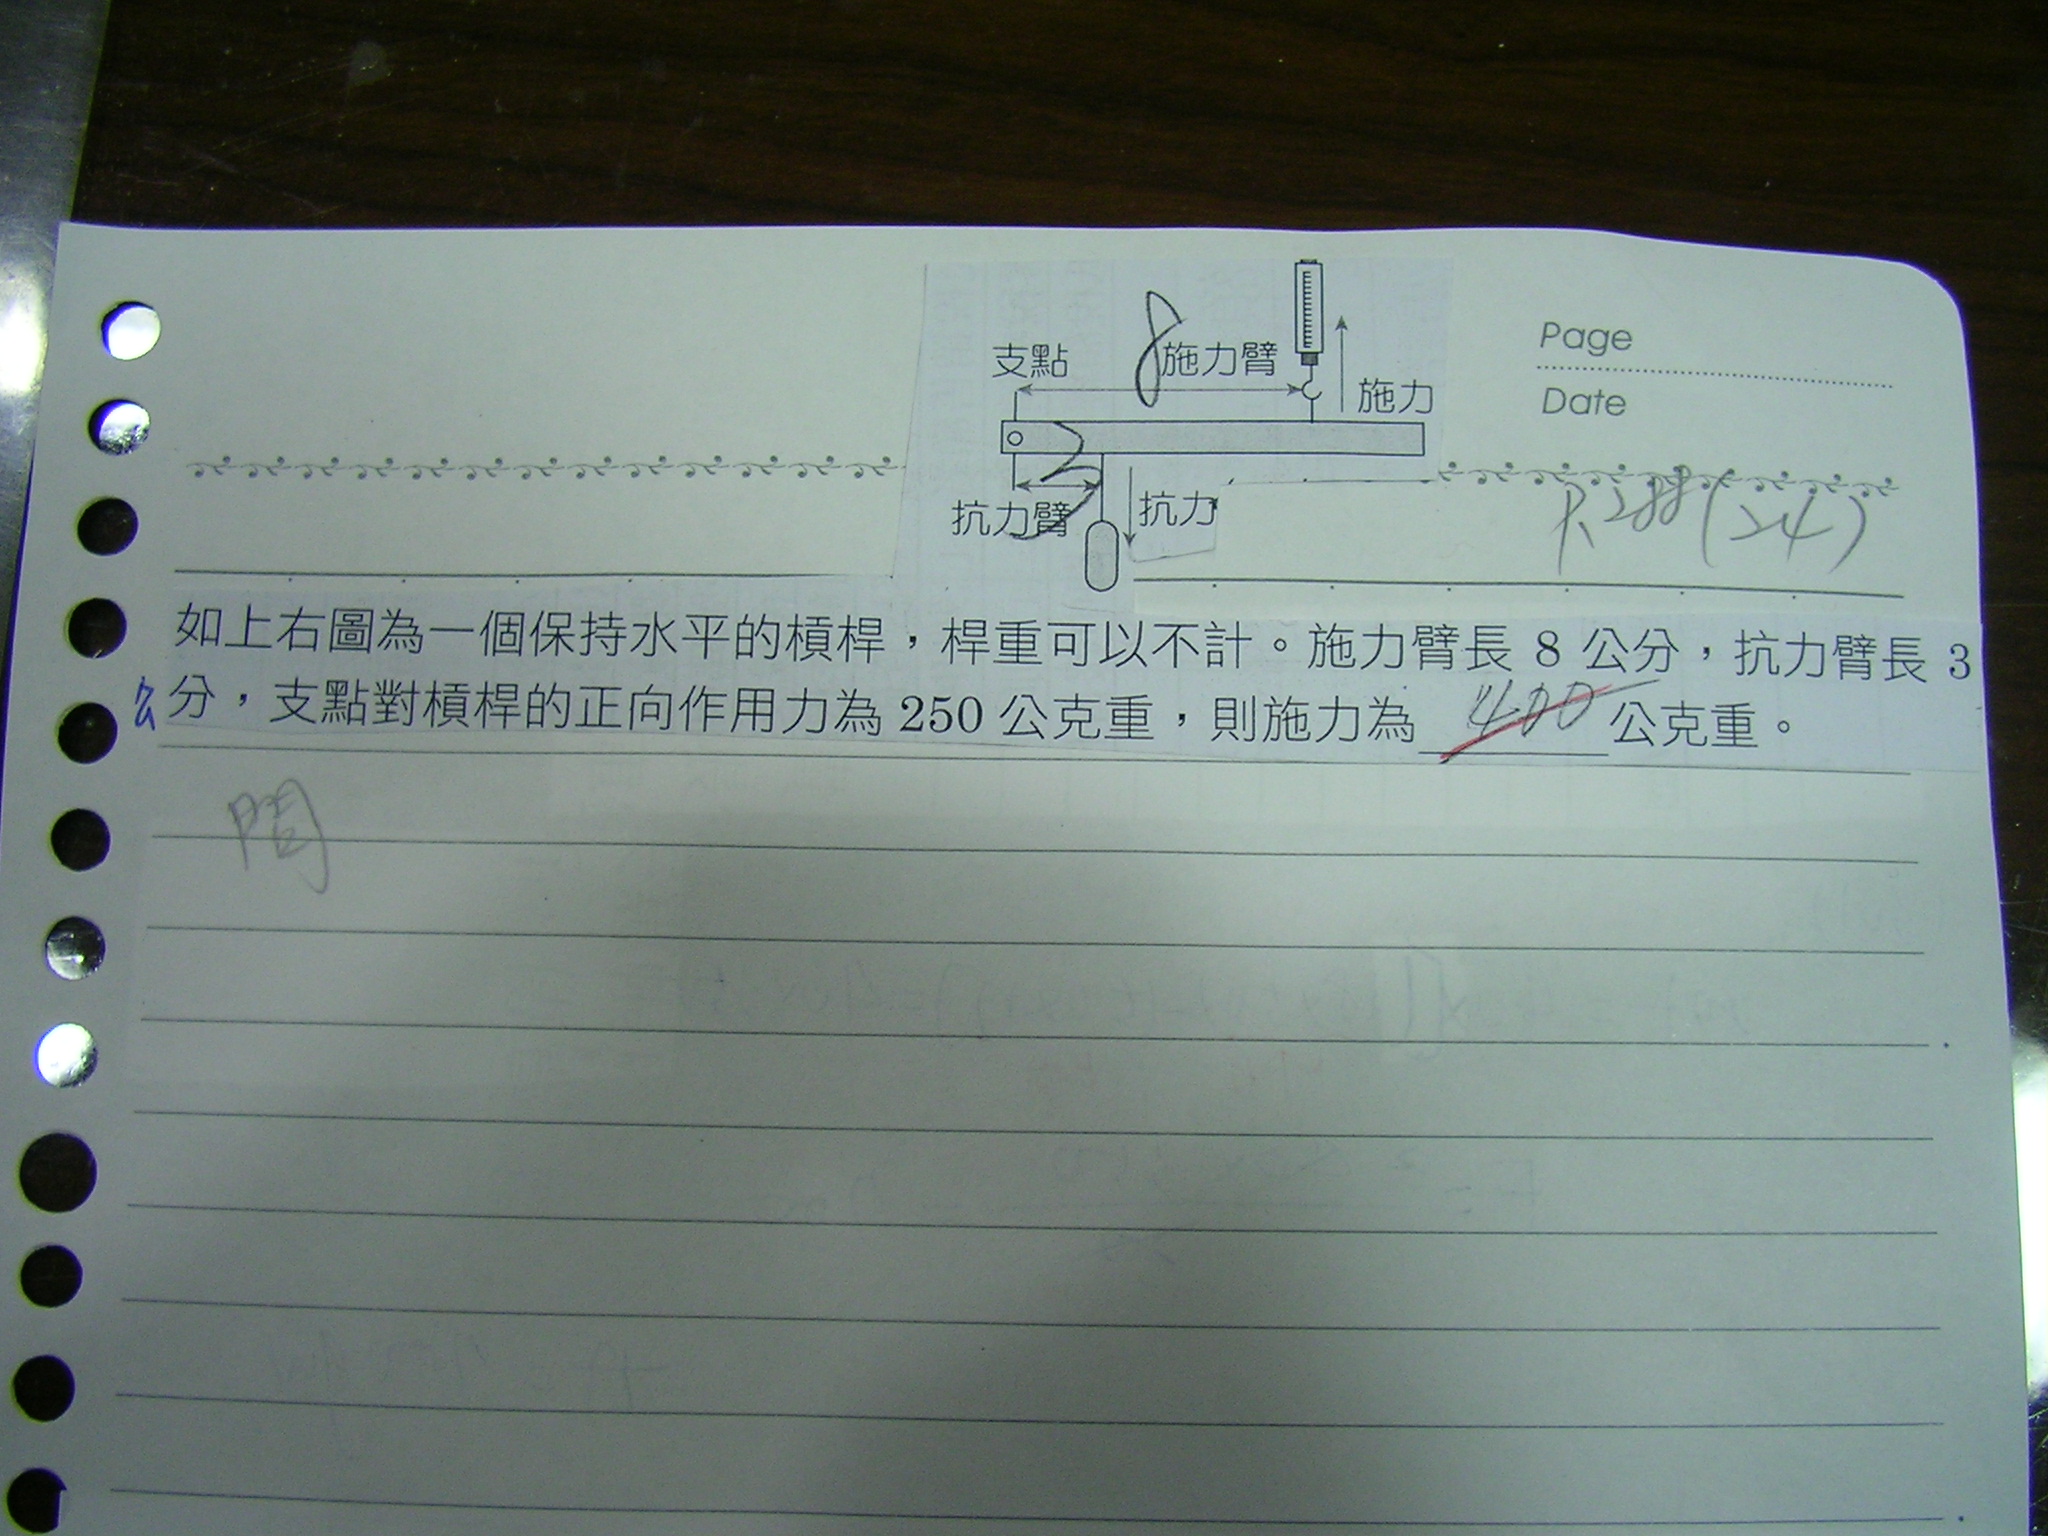 Page
支點
8
施力臂
施力
Date
3
抗力臂
抗力
P.288(24)
如上右圖為一個保持水平的槓桿，桿重可以不計。施力臂長 8 公分，抗力臂長 3
公分，支點對槓桿的正向作用力為 250 公克重，則施力為 400 公克重。
問